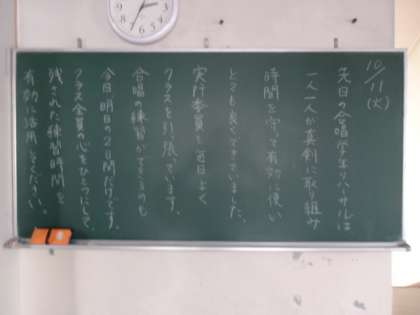 10/11(火)
先日の合唱学年リハーサルは
一人一人が真剣に取り組み
時間を守って有効に使い
とても良くできていました。
実行委員も毎日よく
クラスを引っ張っています。
合唱の練習ができるのも
今日明日の2日間だけです。
クラス全員の心をひとつにして、
残された練習時間を
有効に活用してください。